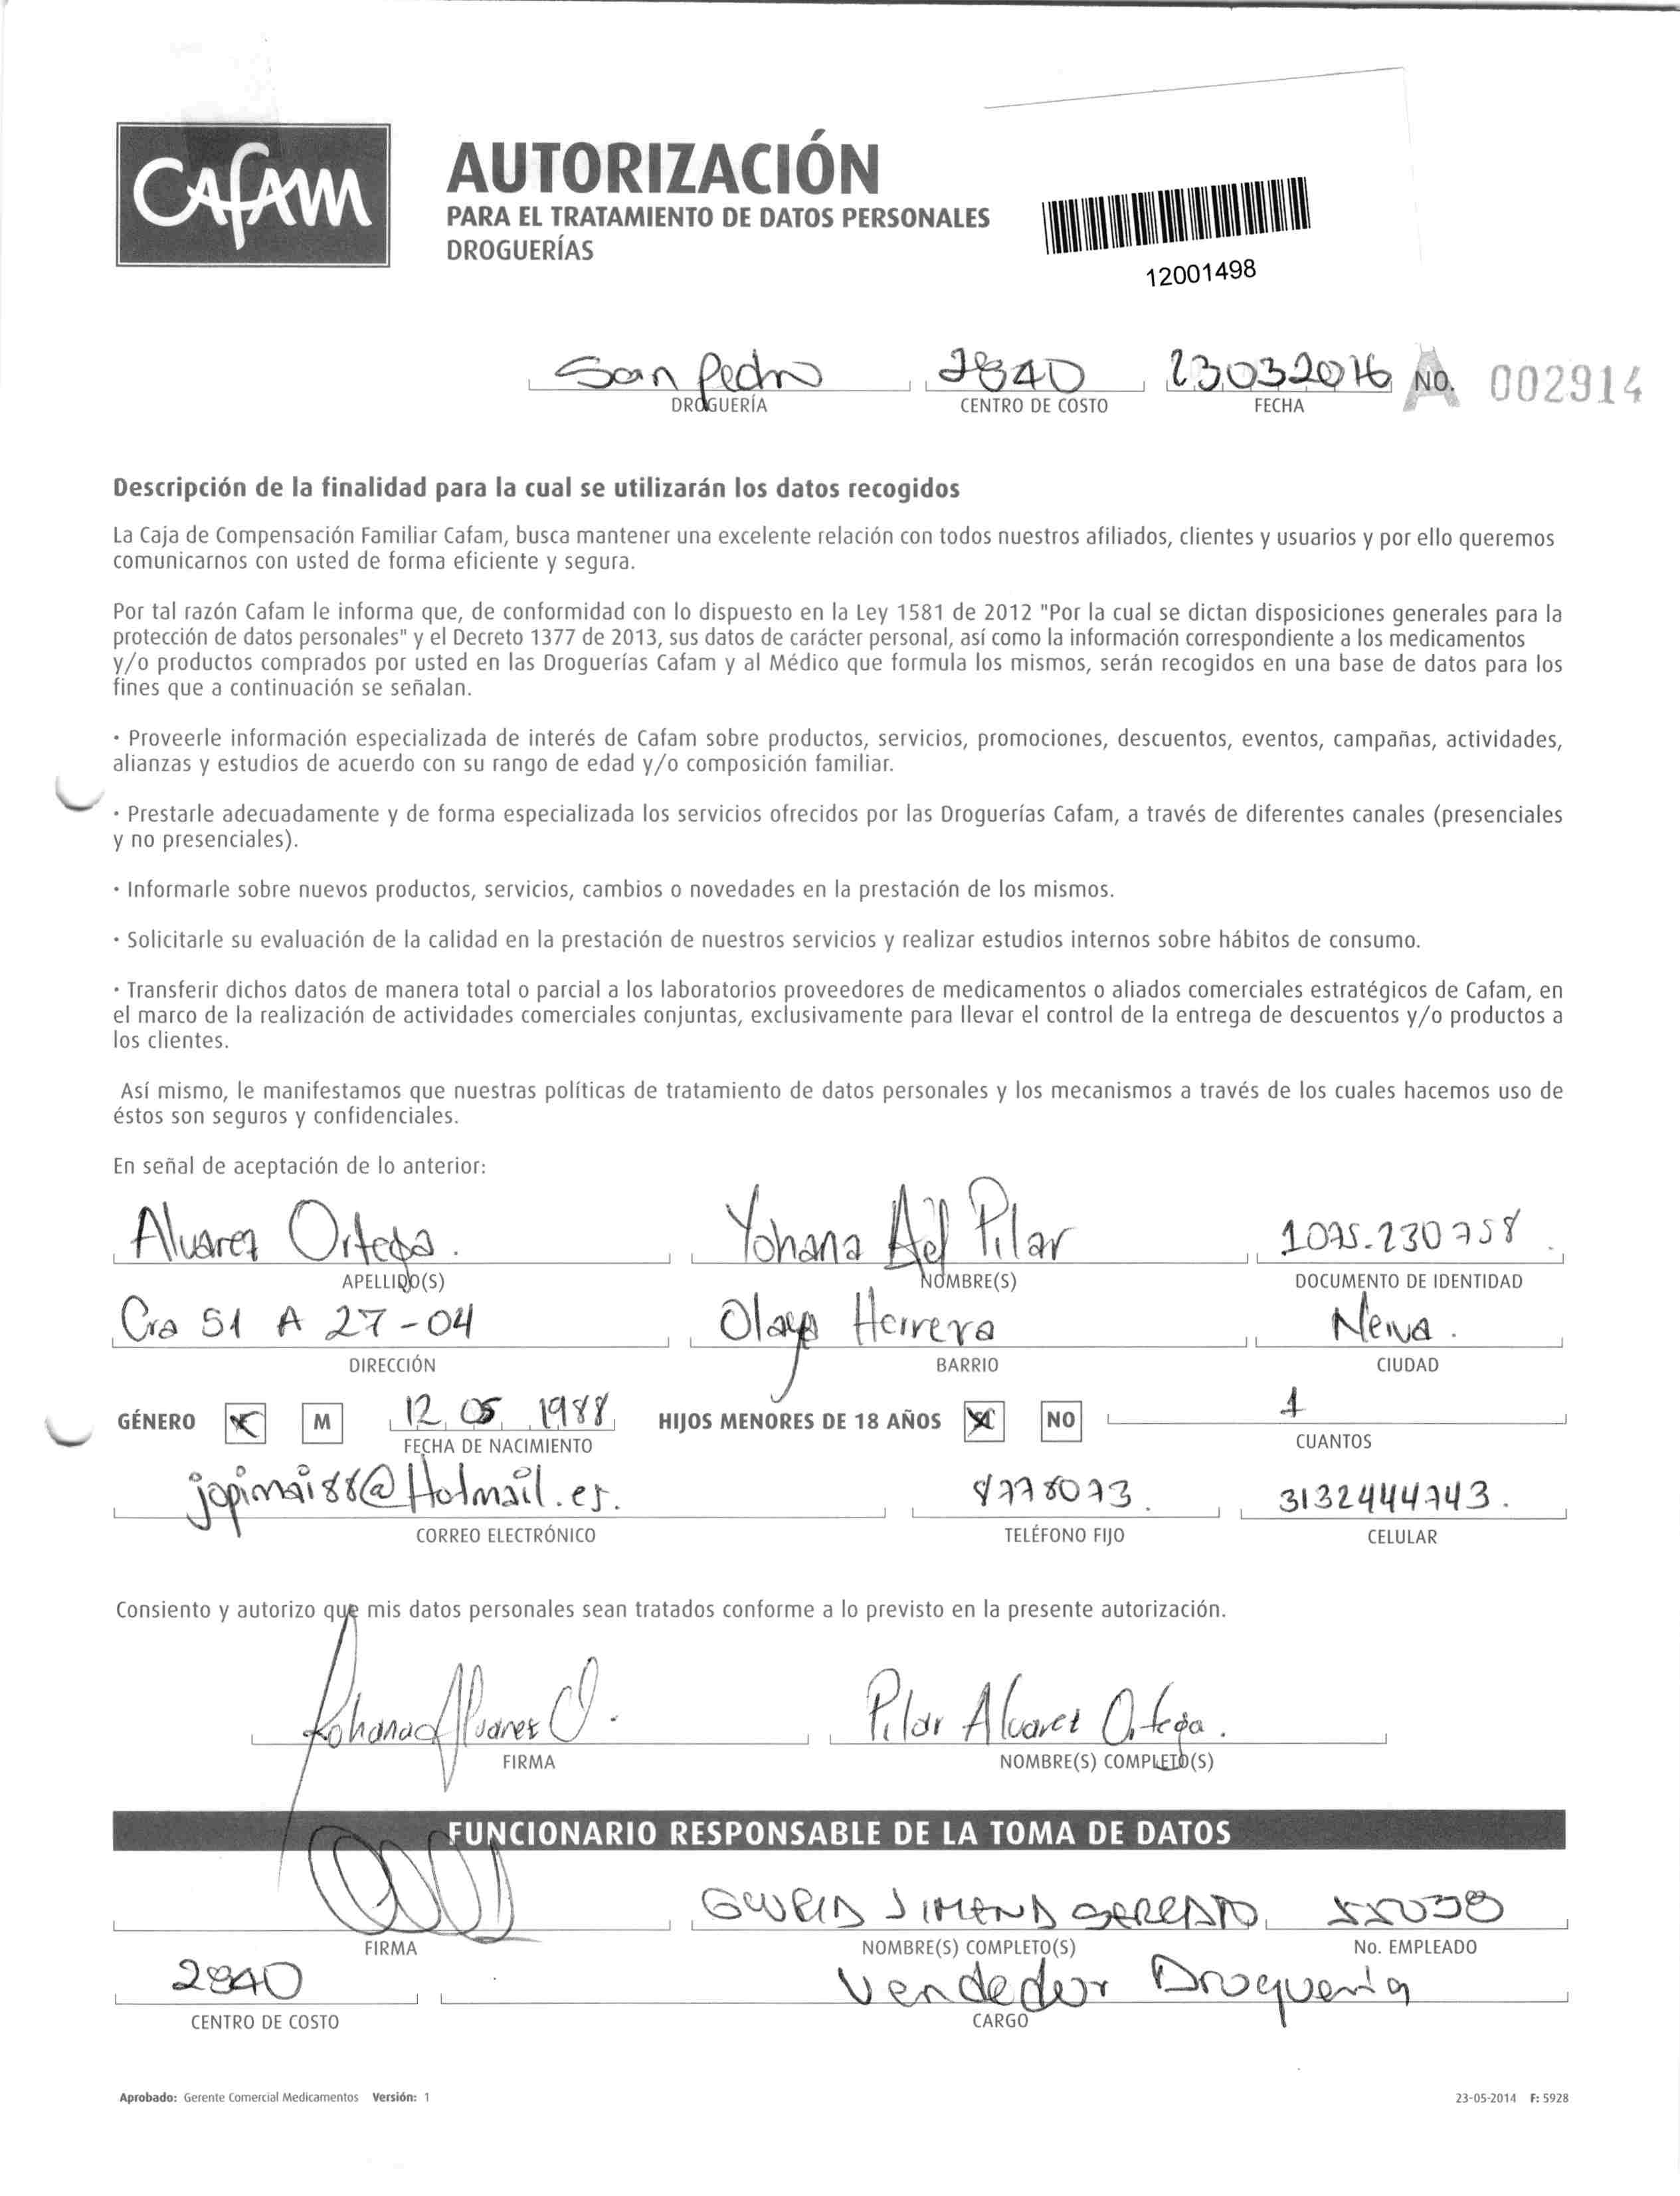 CAFAM
AUTORIZACIÓN
PARA EL TRATAMIENTO DE DATOS PERSONALES
DROGUERÍAS
12001498
San Pedro 2840 23032016 A No. 002914
DROGUERÍA CENTRO DE COSTO FECHA
Descripción de la finalidad para la cual se utilizarán los datos recogidos
La Caja de Compensación Familiar Cafam, busca mantener una excelente relación con todos nuestros afiliados, clientes y usuarios y por ello queremos
comunicarnos con usted de forma eficiente y segura.
Por tal razón Cafam le informa que, de conformidad con lo dispuesto en la Ley 1581 de 2012 "Por la cual se dictan disposiciones generales para la
protección de datos personales" y el Decreto 1377 de 2013, sus datos de carácter personal, así como la información correspondiente a los medicamentos
y/o productos comprados por usted en las Droguerías Cafam y al Médico que formula los mismos, serán recogidos en una base de datos para los
fines que a continuación se señalan.
· Proveerle información especializada de interés de Cafam sobre productos, servicios, promociones, descuentos, eventos, campañas, actividades,
alianzas y estudios de acuerdo con su rango de edad y/o composición familiar.
· Prestarle adecuadamente y de forma especializada los servicios ofrecidos por las Droguerías Cafam, a través de diferentes canales (presenciales
y no presenciales).
· Informarle sobre nuevos productos, servicios, cambios o novedades en la prestación de los mismos.
· Solicitarle su evaluación de la calidad en la prestación de nuestros servicios y realizar estudios internos sobre hábitos de consumo.
· Transferir dichos datos de manera total o parcial a los laboratorios proveedores de medicamentos o aliados comerciales estratégicos de Cafam, en
el marco de la realización de actividades comerciales conjuntas, exclusivamente para llevar el control de la entrega de descuentos y/o productos a
los clientes.
Así mismo, le manifestamos que nuestras políticas de tratamiento de datos personales y los mecanismos a través de los cuales hacemos uso de
éstos son seguros y confidenciales.
En señal de aceptación de lo anterior:
Alvarez Ortega. Yohana del Pilar 1075.230758.
APELLIDO(S) NOMBRE(S) DOCUMENTO DE IDENTIDAD
Cra 51 A 27-04 Olaya Herrera Neiva.
DIRECCIÓN BARRIO CIUDAD
GÉNERO M 12 05 1988 HIJOS MENORES DE 18 AÑOS NO 1
FECHA DE NACIMIENTO CUANTOS
jopimai88@Hotmail.es. 8778073. 3132444743.
CORREO ELECTRÓNICO TELÉFONO FIJO CELULAR
Consiento y autorizo que mis datos personales sean tratados conforme a lo previsto en la presente autorización.
Yohana Alvarez O. Pilar Alvarez Ortega.
FIRMA NOMBRE(S) COMPLETO(S)
FUNCIONARIO RESPONSABLE DE LA TOMA DE DATOS
GLORIA JIMENA 55038
FIRMA NOMBRE(S) COMPLETO(S) No. EMPLEADO
2840 Vendedor Drogueria
CENTRO DE COSTO CARGO
Aprobado: Gerente Comercial Medicamentos Versión: 1 23-05-2014 F: 5928